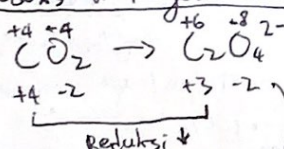 +4 -4 +6 -8 2-
CO₂ → C₂O₄
+4 -2 +3 -2
Reduksi ↓